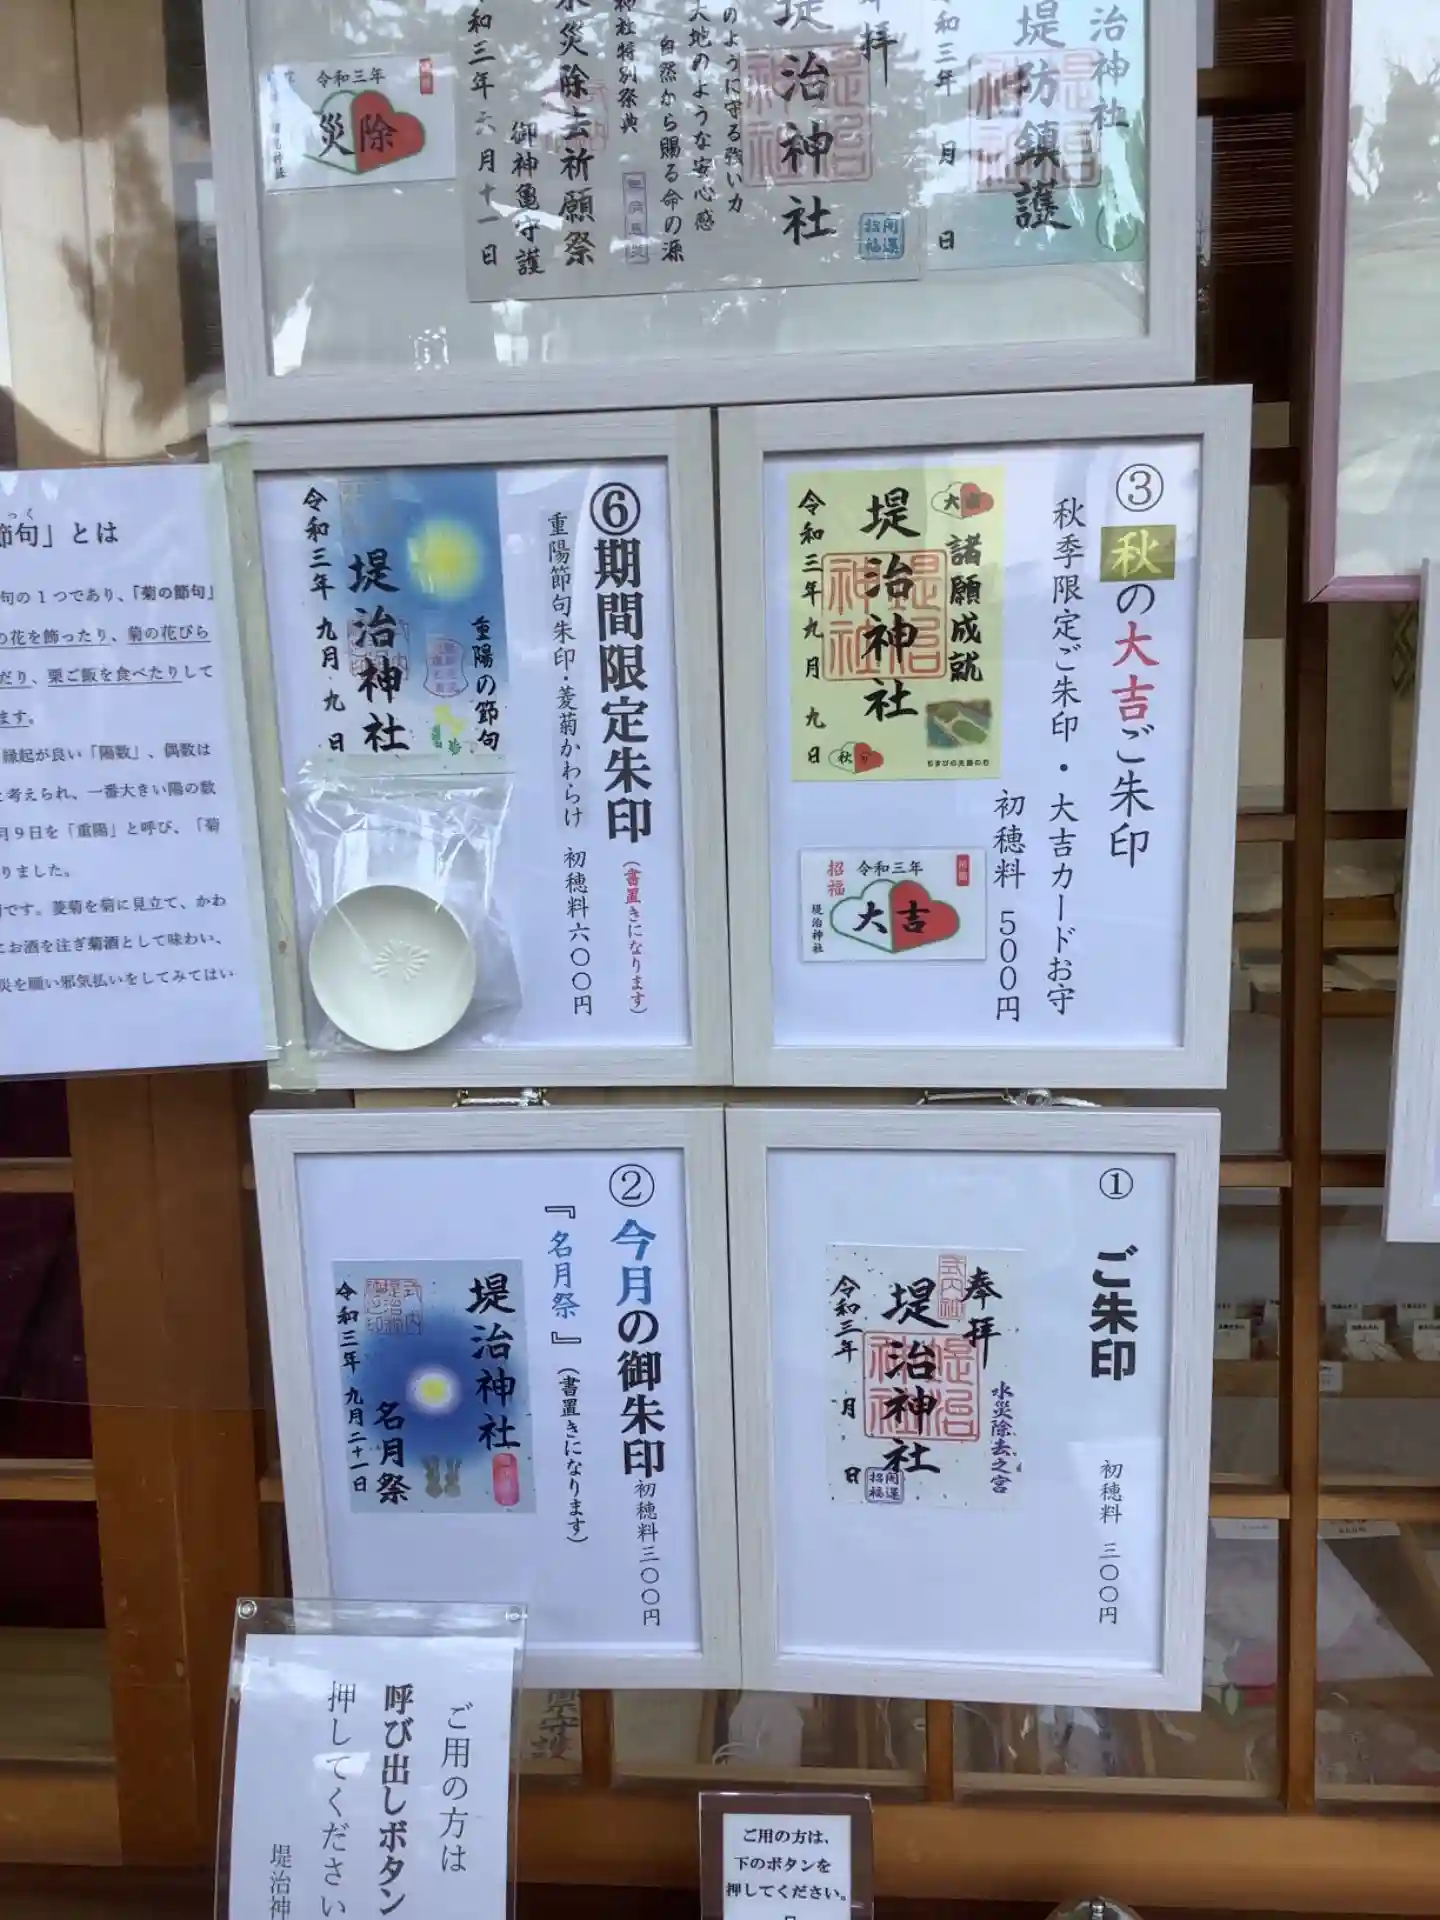 治神社
堤防鎮護
令和三年
月
日
奉拝
堤治神社
開運
招福
のように守る強い力
大地のような安心感
自然から賜る命の源
神社特別祭典
水災除去祈願祭
御神亀守護
令和三年六月十一日
令和三年
災除
③
秋の大吉ご朱印
秋季限定ご朱印・大吉カードお守
初穂料 500円
大吉
諸願成就
堤治神社
令和三年九月九日
秋
令和三年
招福
大吉
堤治神社
⑥
期間限定朱印
(書置きになります)
重陽節句朱印・菱菊かわらけ 初穂料六〇〇円
重陽の節句
堤治神社
令和三年九月九日
節句」とは
句の1つであり、「菊の節句」
の花を飾ったり、菊の花びら
だり、栗ご飯を食べたりして
ます。
縁起が良い「陽数」、偶数は
と考えられ、一番大きい陽の数
月9日を「重陽」と呼び、「菊
りました。
です。菱菊を菊に見立て、かわ
にお酒を注ぎ菊酒として味わい、
災を願い邪気払いをしてみてはい
①
ご朱印
初穂料 三〇〇円
奉拝
式内社
水災除去之宮
堤治神社
令和三年 月 日
開運
招福
②
今月の御朱印
初穂料三〇〇円
『名月祭』(書置きになります)
堤治神社
名月祭
令和三年九月二十一日
ご用の方は
呼び出しボタン
押してください
堤治神
ご用の方は、
下のボタンを
押してください。